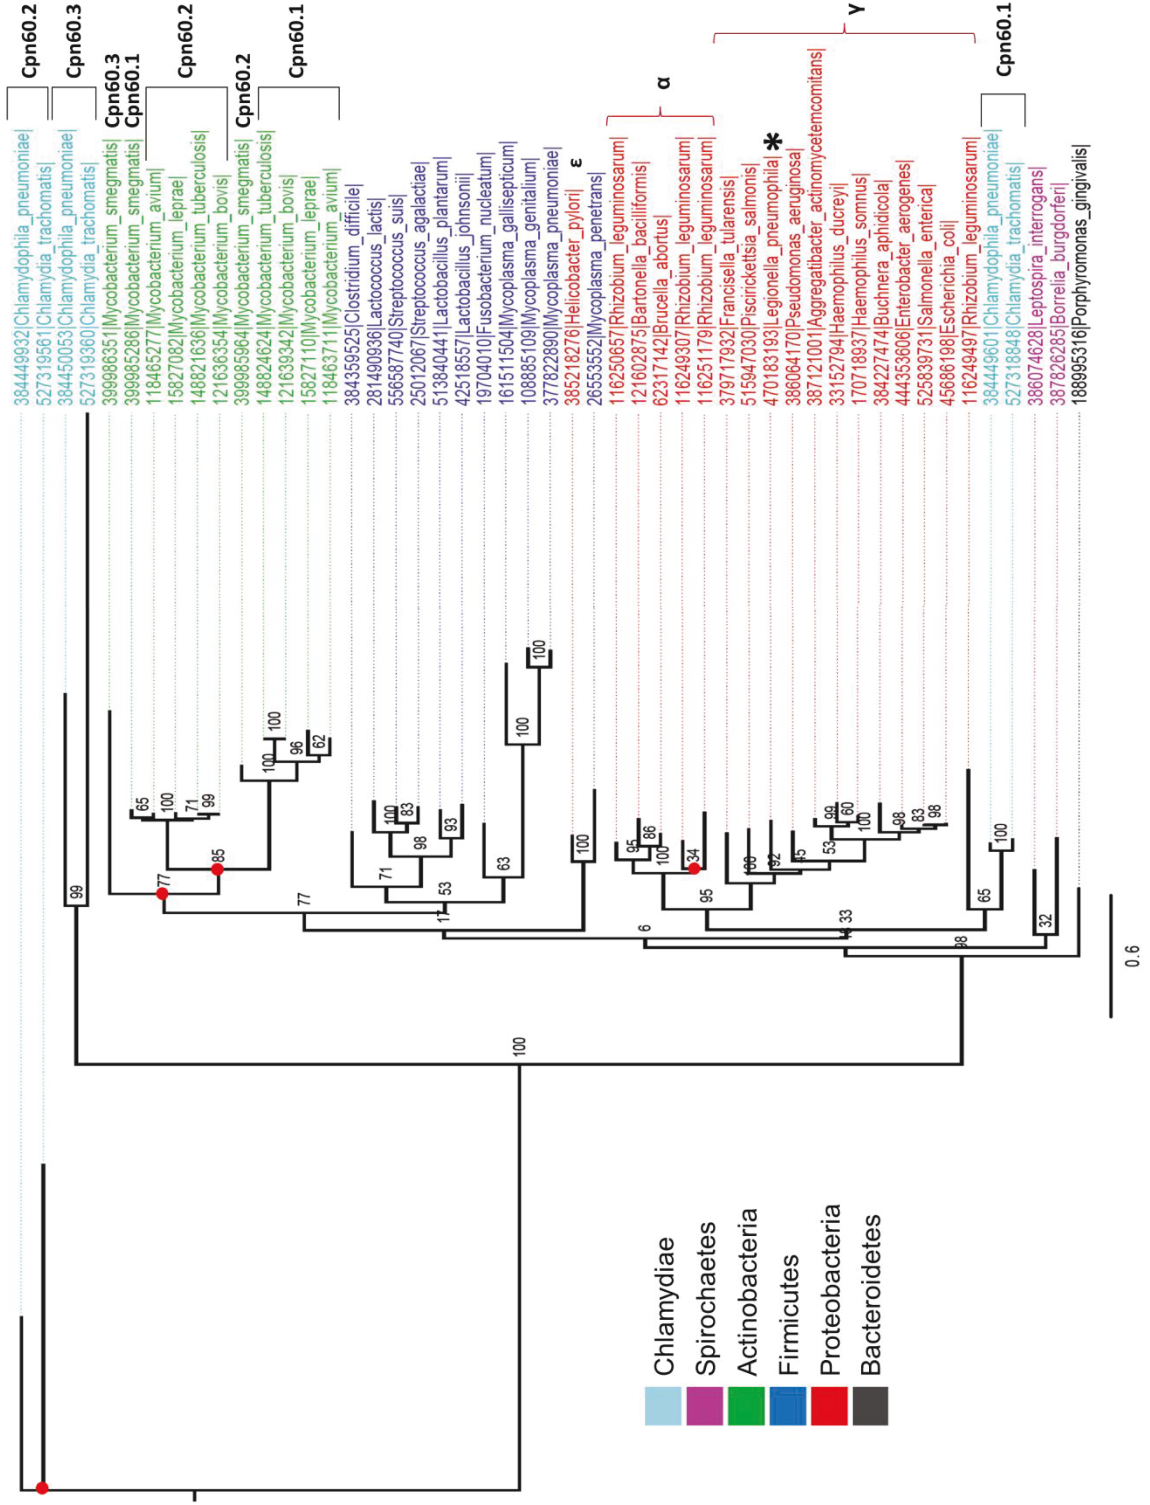 384449932|Chlamydophila_pneumoniae|
527319561|Chlamydia_trachomatis|
384450053|Chlamydophila_pneumoniae|
527319360|Chlamydia_trachomatis|
399986351|Mycobacterium_smegmatis|
399985286|Mycobacterium_smegmatis|
118465277|Mycobacterium_avium|
15827082|Mycobacterium_leprae|
148821636|Mycobacterium_tuberculosis|
121636354|Mycobacterium_bovis|
399985964|Mycobacterium_smegmatis|
148824624|Mycobacterium_tuberculosis|
121639342|Mycobacterium_bovis|
15827110|Mycobacterium_leprae|
118463711|Mycobacterium_avium|
384359525|Clostridium_difficile|
281490936|Lactococcus_lactis|
556587740|Streptococcus_suis|
25012067|Streptococcus_agalactiae|
513840441|Lactobacillus_plantarum|
42518557|Lactobacillus_johnsonii|
19704010|Fusobacterium_nucleatum|
161511504|Mycoplasma_gallisepticum|
108885109|Mycoplasma_genitalium|
377822890|Mycoplasma_pneumoniae|
385218276|Helicobacter_pylori|
26553552|Mycoplasma_penetrans|
116250657|Rhizobium_leguminosarum|
121602875|Bartonella_bacilliformis|
62317142|Brucella_abortus|
116249307|Rhizobium_leguminosarum|
116251179|Rhizobium_leguminosarum|
379717932|Francisella_tularensis|
515947030|Piscirickettsia_salmonis|
470183193|Legionella_pneumophila|
386064170|Pseudomonas_aeruginosa|
387121001|Aggregatibacter_actinomycetemcomitans|
33152794|Haemophilus_ducreyi|
170718937|Haemophilus_somnus|
384227474|Buchnera_aphidicola|
444353606|Enterobacter_aerogenes|
525839731|Salmonella_enterica|
45686198|Escherichia_coli|
116249497|Rhizobium_leguminosarum|
384449601|Chlamydophila_pneumoniae|
527318848|Chlamydia_trachomatis|
386074628|Leptospira_interrogans|
387826285|Borrelia_burgdorferi|
188995316|Porphyromonas_gingivalis|
Cpn60.2
Cpn60.3
Cpn60.3
Cpn60.1
Cpn60.2
Cpn60.2
Cpn60.1
ε
α
*
γ
Cpn60.1
99
77
85
65
100
71
99
100
100
96
62
77
71
100
83
98
93
53
17
63
100
100
100
6
95
86
100
34
95
92
45
53
99
60
100
98
83
98
33
65
100
32
98
100
0.6
Chlamydiae
Spirochaetes
Actinobacteria
Firmicutes
Proteobacteria
Bacteroidetes